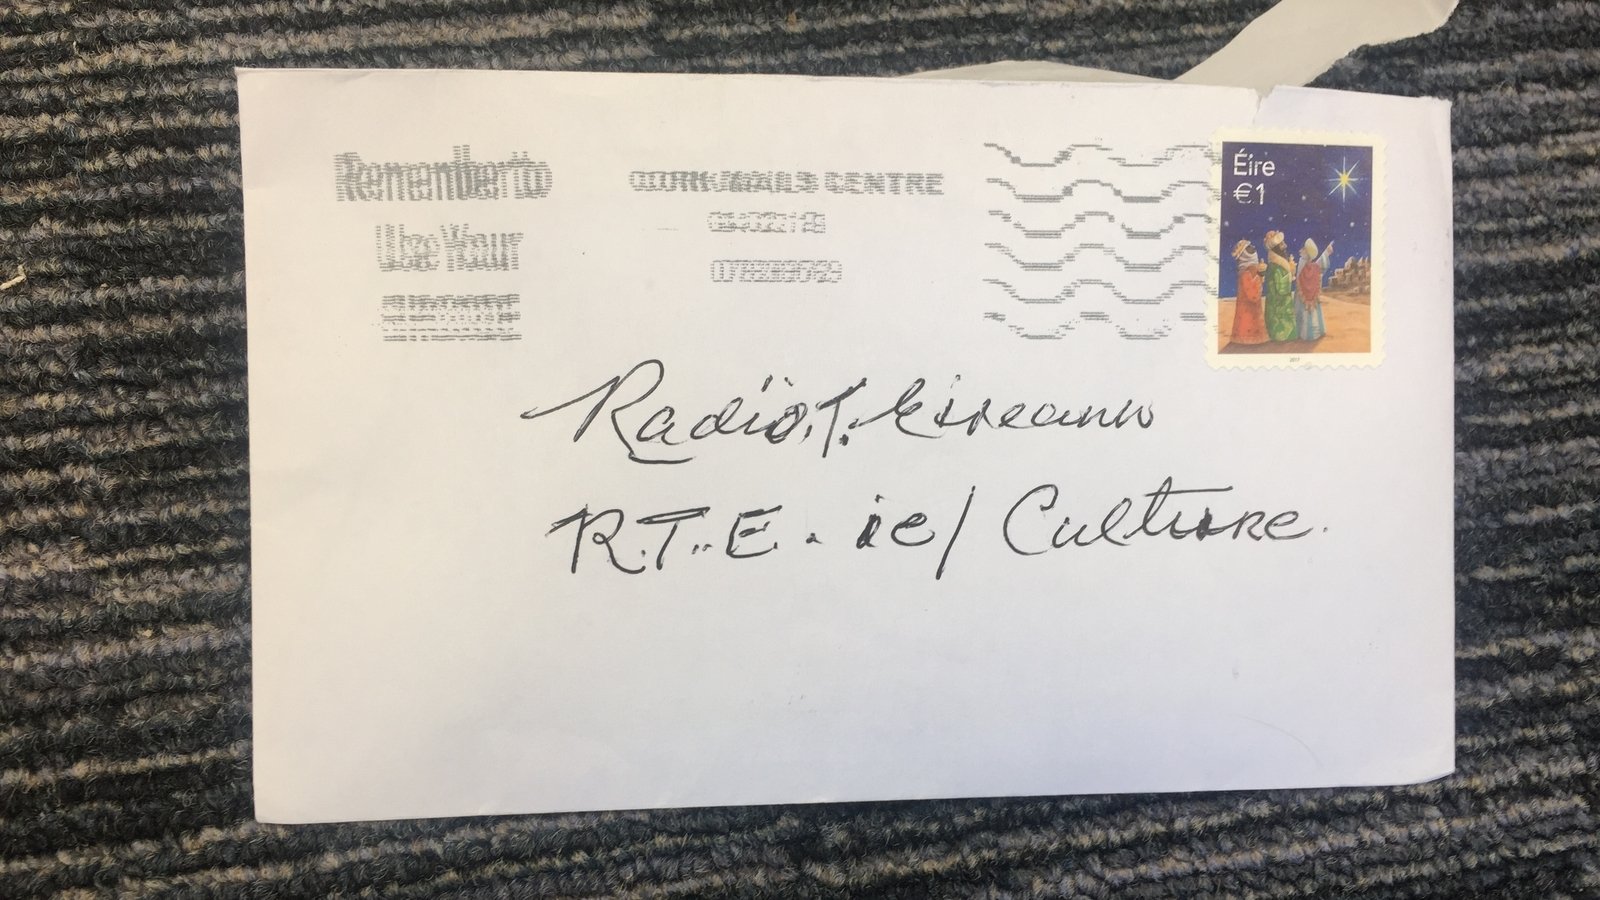 Remember to
Use Your
CORK MAILS CENTRE
Éire
€1
2017
Radio T. Eireann
R.T.E. ie/ Culture.